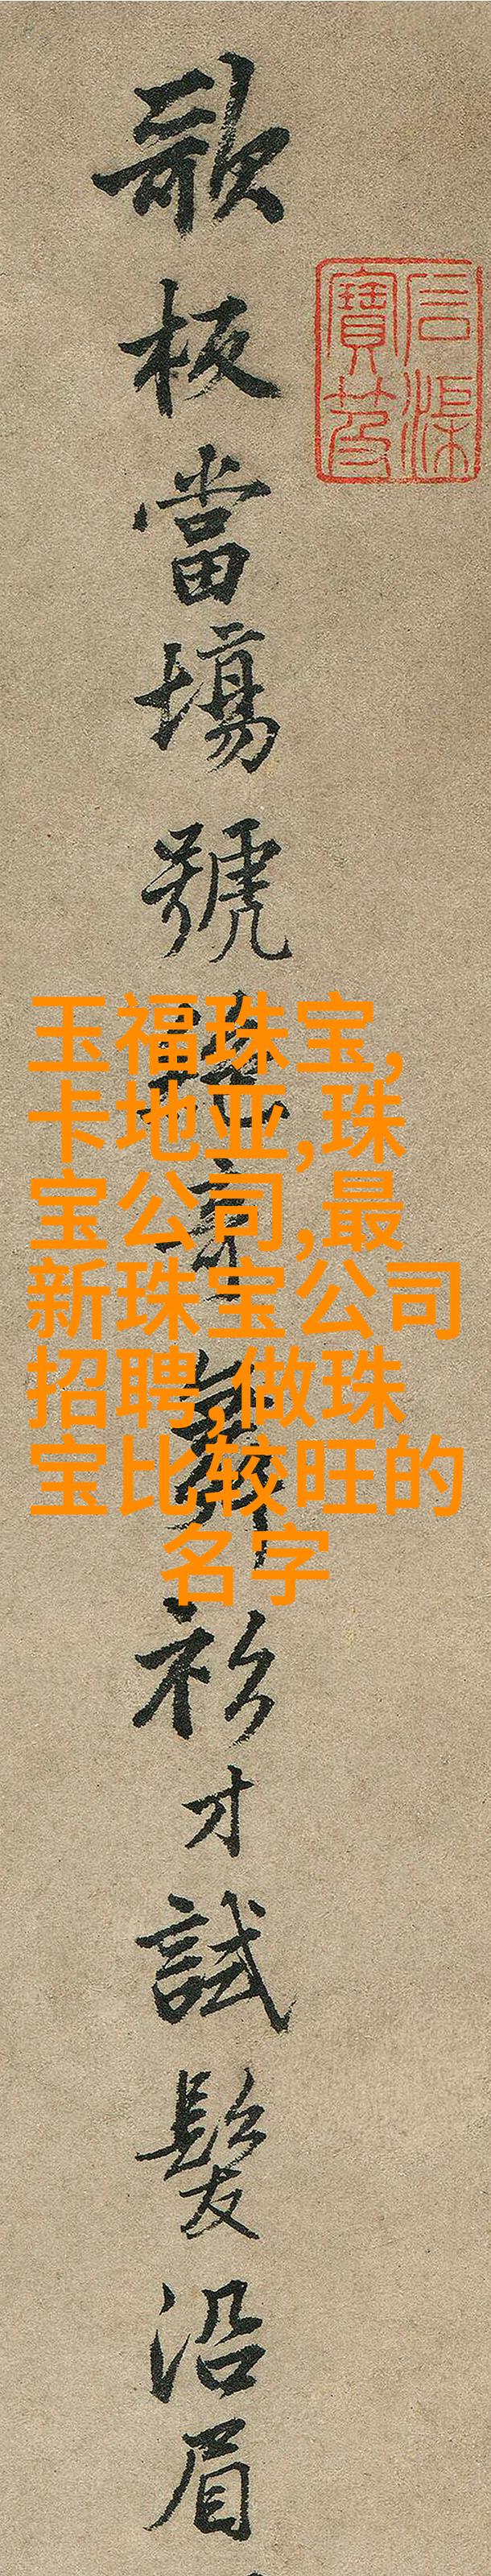 石渠
寶笈
歌板當場號舞衫才試髮沿眉
玉福珠宝,
卡地亚,珠
宝公司,最
新珠宝公司
招聘,做珠
宝比较旺的
名字